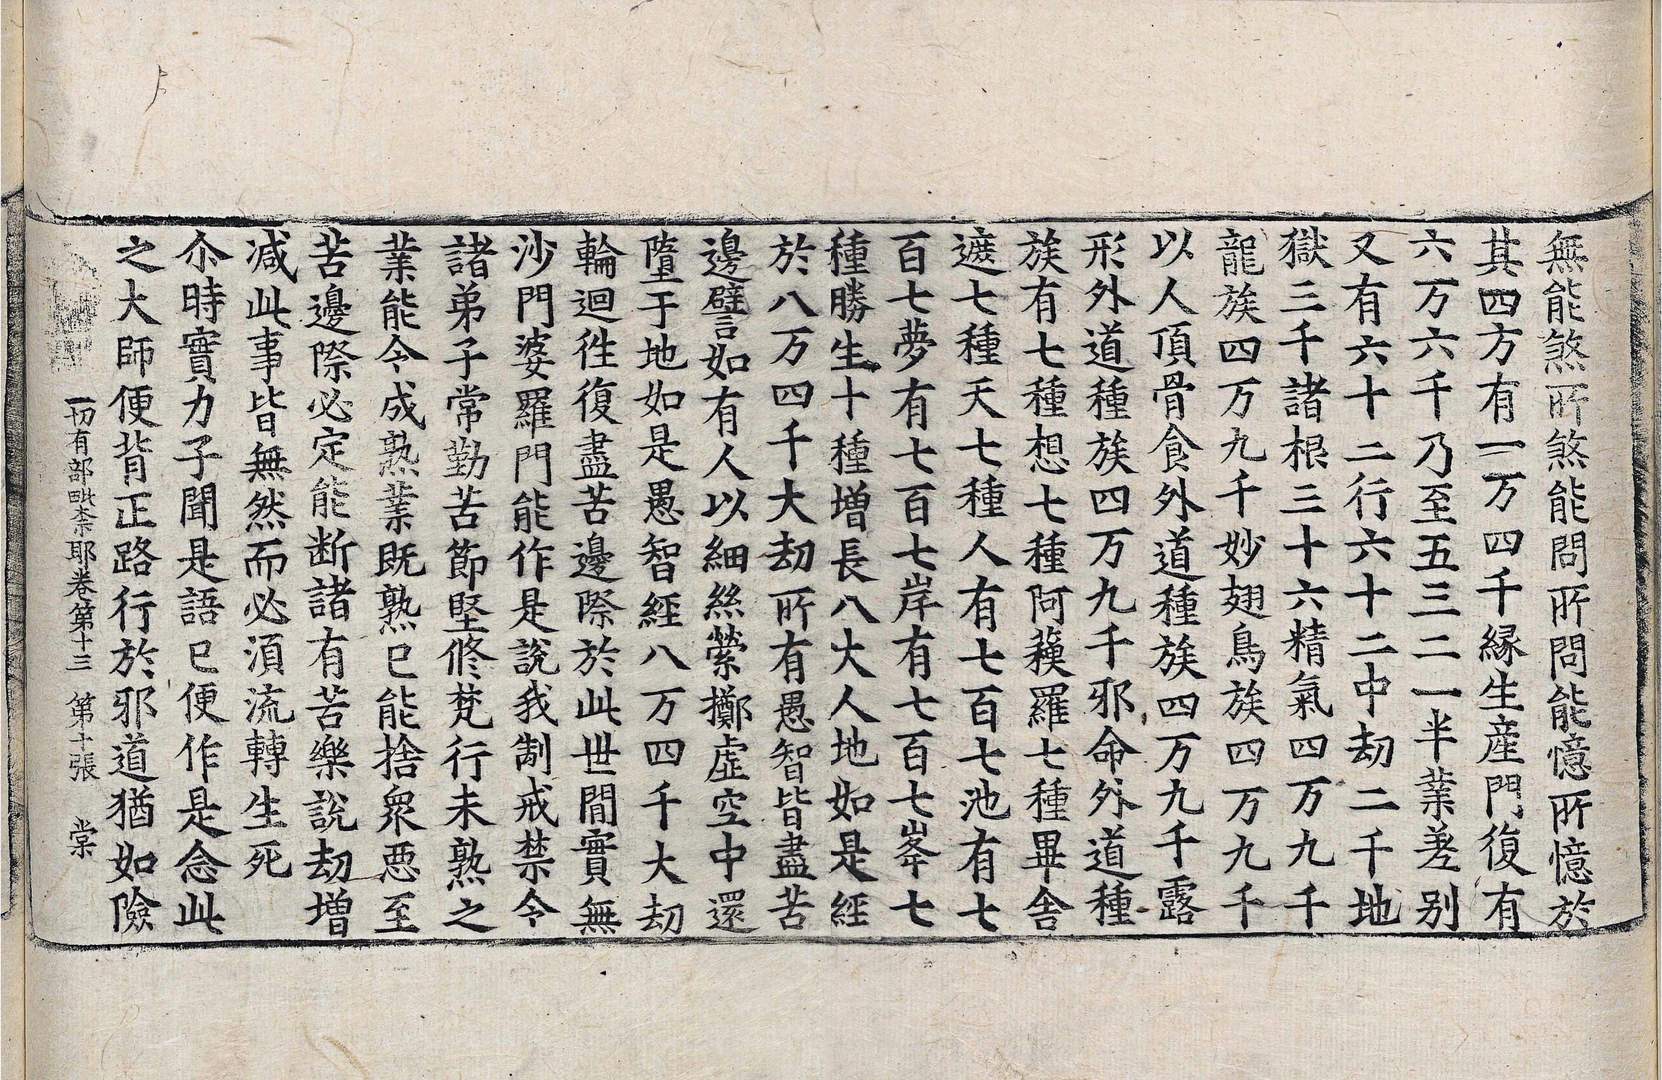 無能煞所煞能問所問能憶所憶於
其四方有一万四千縁生産門復有
六万六千乃至五三二一半業差别
又有六十二行六十二中劫二千地
獄三千諸根三十六精氣四万九千
龍族四万九千妙翅鳥族四万九千
以人頂骨食外道種族四万九千露
形外道種族四万九千邪命外道種
族有七種想七種阿蘓羅七種畢舎
遮七種天七種人有七百七池有七
百七夢有七百七岸有七百七峯七
種勝生十種増長八大人地如是經
於八万四千大劫所有愚智皆盡苦
邊譬如有人以細絲縈擲虚空中還
墮于地如是愚智經八万四千大劫
輪迴徃復盡苦邊際於此世間實無
沙門婆羅門能作是說我制戒禁令
諸弟子常勤苦節堅修梵行未熟之
業能令成熟業既熟已能捨衆悪至
苦邊際必定能断諸有苦樂說劫増
减此事皆無然而必湏流轉生死
尒時實力子聞是語已便作是念此
之大師便背正路行於邪道猶如險
一切有部毗柰耶卷第十三　第十張　棠